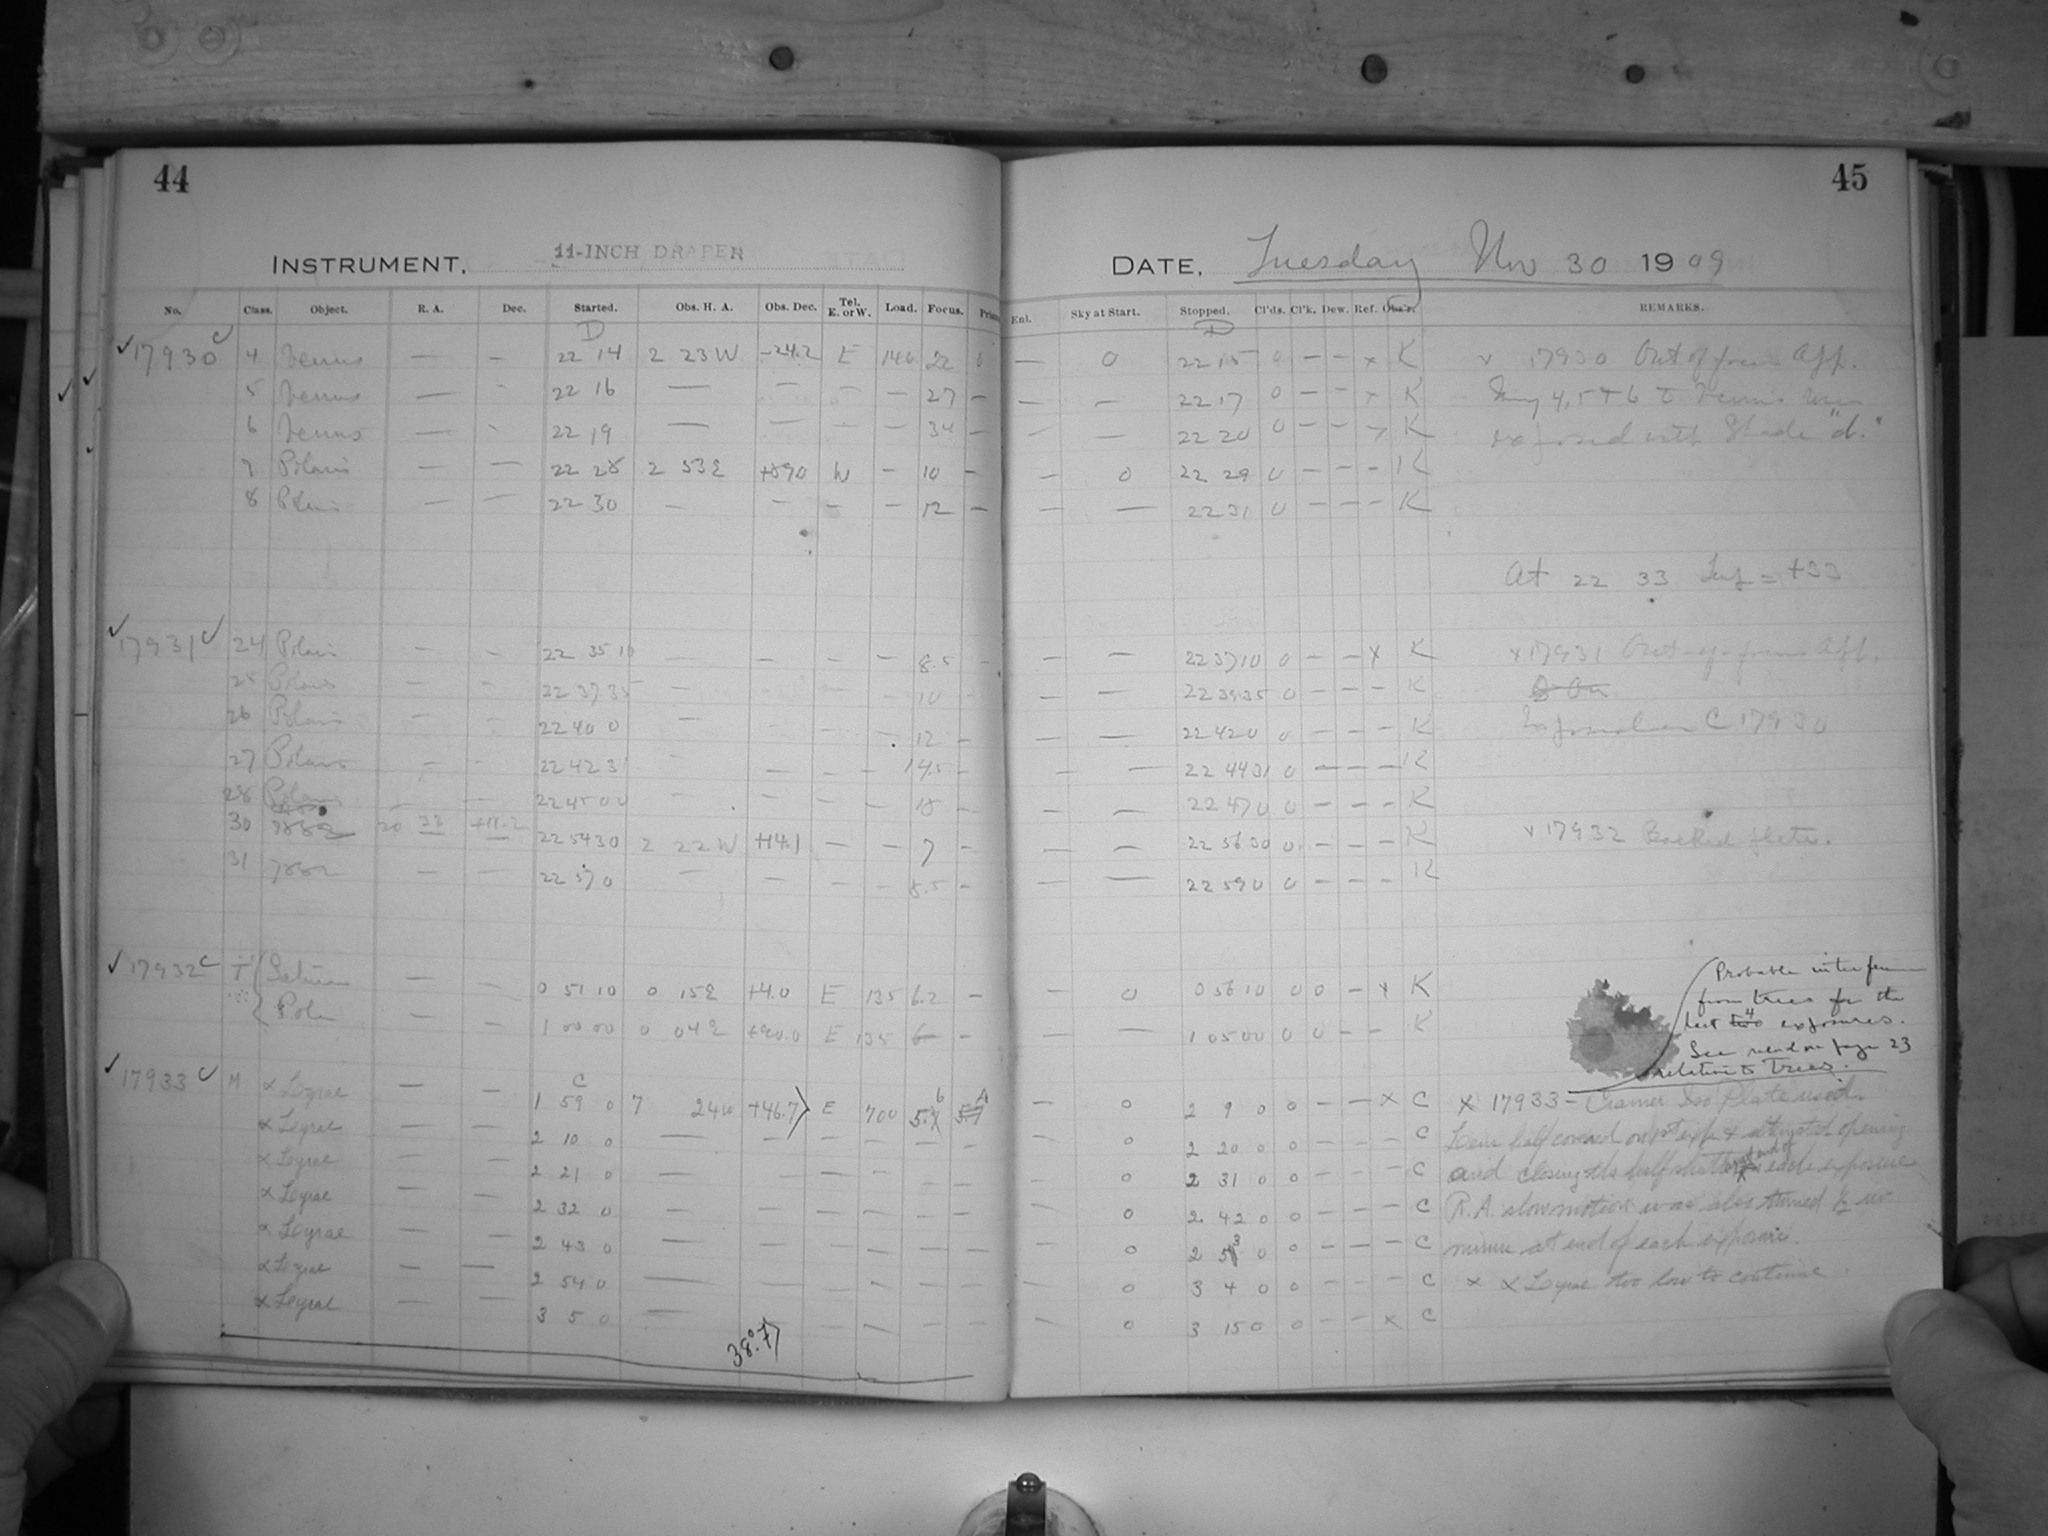 44
INSTRUMENT. 11-INCH DRAPER
No. Class. Object. R. A. Dec. Started. Obs. H. A. Obs. Dec. Tel. E. or W. Load. Focus.
D
17930 C 4 Venus — - 22 14 2 23 W -24.2 E 146 22 0
5 Venus — - 22 16 — — — — 27 —
6 Venus — - 22 19 — — - — 34 —
7 Polaris — — 22 28 2 53 E +890 W — 10 —
8 Polaris — — 22 30 — — — — 12 —
17931 C 24 Polaris — — 22 35 10 — — — — 8.5 —
25 Polaris — — 22 37 35 — — — — 10
26 Polaris — — 22 40 0 — — - — 12 —
27 Polaris — - 22 42 31 — — — — 14.5 —
28 Polaris — — 22 45 00 — - — — 18 —
30 7882 20 +14.2 22 54 30 2 22 W +14.1 — — 7 —
31 7882 — — 22 57 0 — — — — 8.5 —
17932 C T Saturn — — 0 51 10 0 15 E +4.0 E 135 6.2 —
Pole — — 1 00 00 0 04 E +90.0 E 135 6 —
C
17933 C M α Leyrae — — 1 59 0 7 24 W +46.7 E 700
α Leyrae — — 2 10 0 — — — — — —
α Leyrae — — 2 21 0 — — — — — —
α Leyrae — — 2 32 0 — — — — — —
α Leyrae — — 2 43 0 — — — — — —
α Leyrae — — 2 54 0 — — — — — —
α Leyrae — — 3 5 0 — — — — —
38°.7
45
DATE. Tuesday Nov 30 1909
Enl. Sky at Start. Stopped. Cl'ds. Cl'k. Dew. Ref. Obs'r. REMARKS.
D
— 0 22 15 0 — — x K x 17930 Out of focus App.
— — 22 17 0 — — x K
— — 22 20 0 — — x K exposed with Shade "d."
— 0 22 29 0 — — — K
— — 22 31 0 — — — K
At 22 33 = +33
— — 22 37 10 0 — — x K x 17931 Out-of-focus App.
— — 22 39 35 0 — — — K
— — 22 42 0 0 — — — K Exposed on C 17930
— — 22 44 31 0 — — — K
— — 22 47 0 0 — — — K
— — 22 56 30 0 — — — K x 17932 Backed plate.
— — 22 59 0 0 — — — K
Probable interference
from trees for the
last 4 exposures.
See on page 23
relative to trees.
— 0 0 56 10 0 0 — x K
— — 1 05 00 0 0 — — K
— 0 2 9 0 0 — — x C x 17933 — Cramer Iso Plate used.
0 2 20 0 0 — — — C Lens half covered on 1st exp. & attempted opening
0 2 31 0 0 — — — C and closing this half shutter at end of each exposure
0 2 42 0 0 — — — C R.A. slow motion was also turned
0 2 53 0 0 — — — C at end of each exposure.
0 3 4 0 0 — — — C x α Leyrae too low to continue.
0 3 15 0 0 — — x C